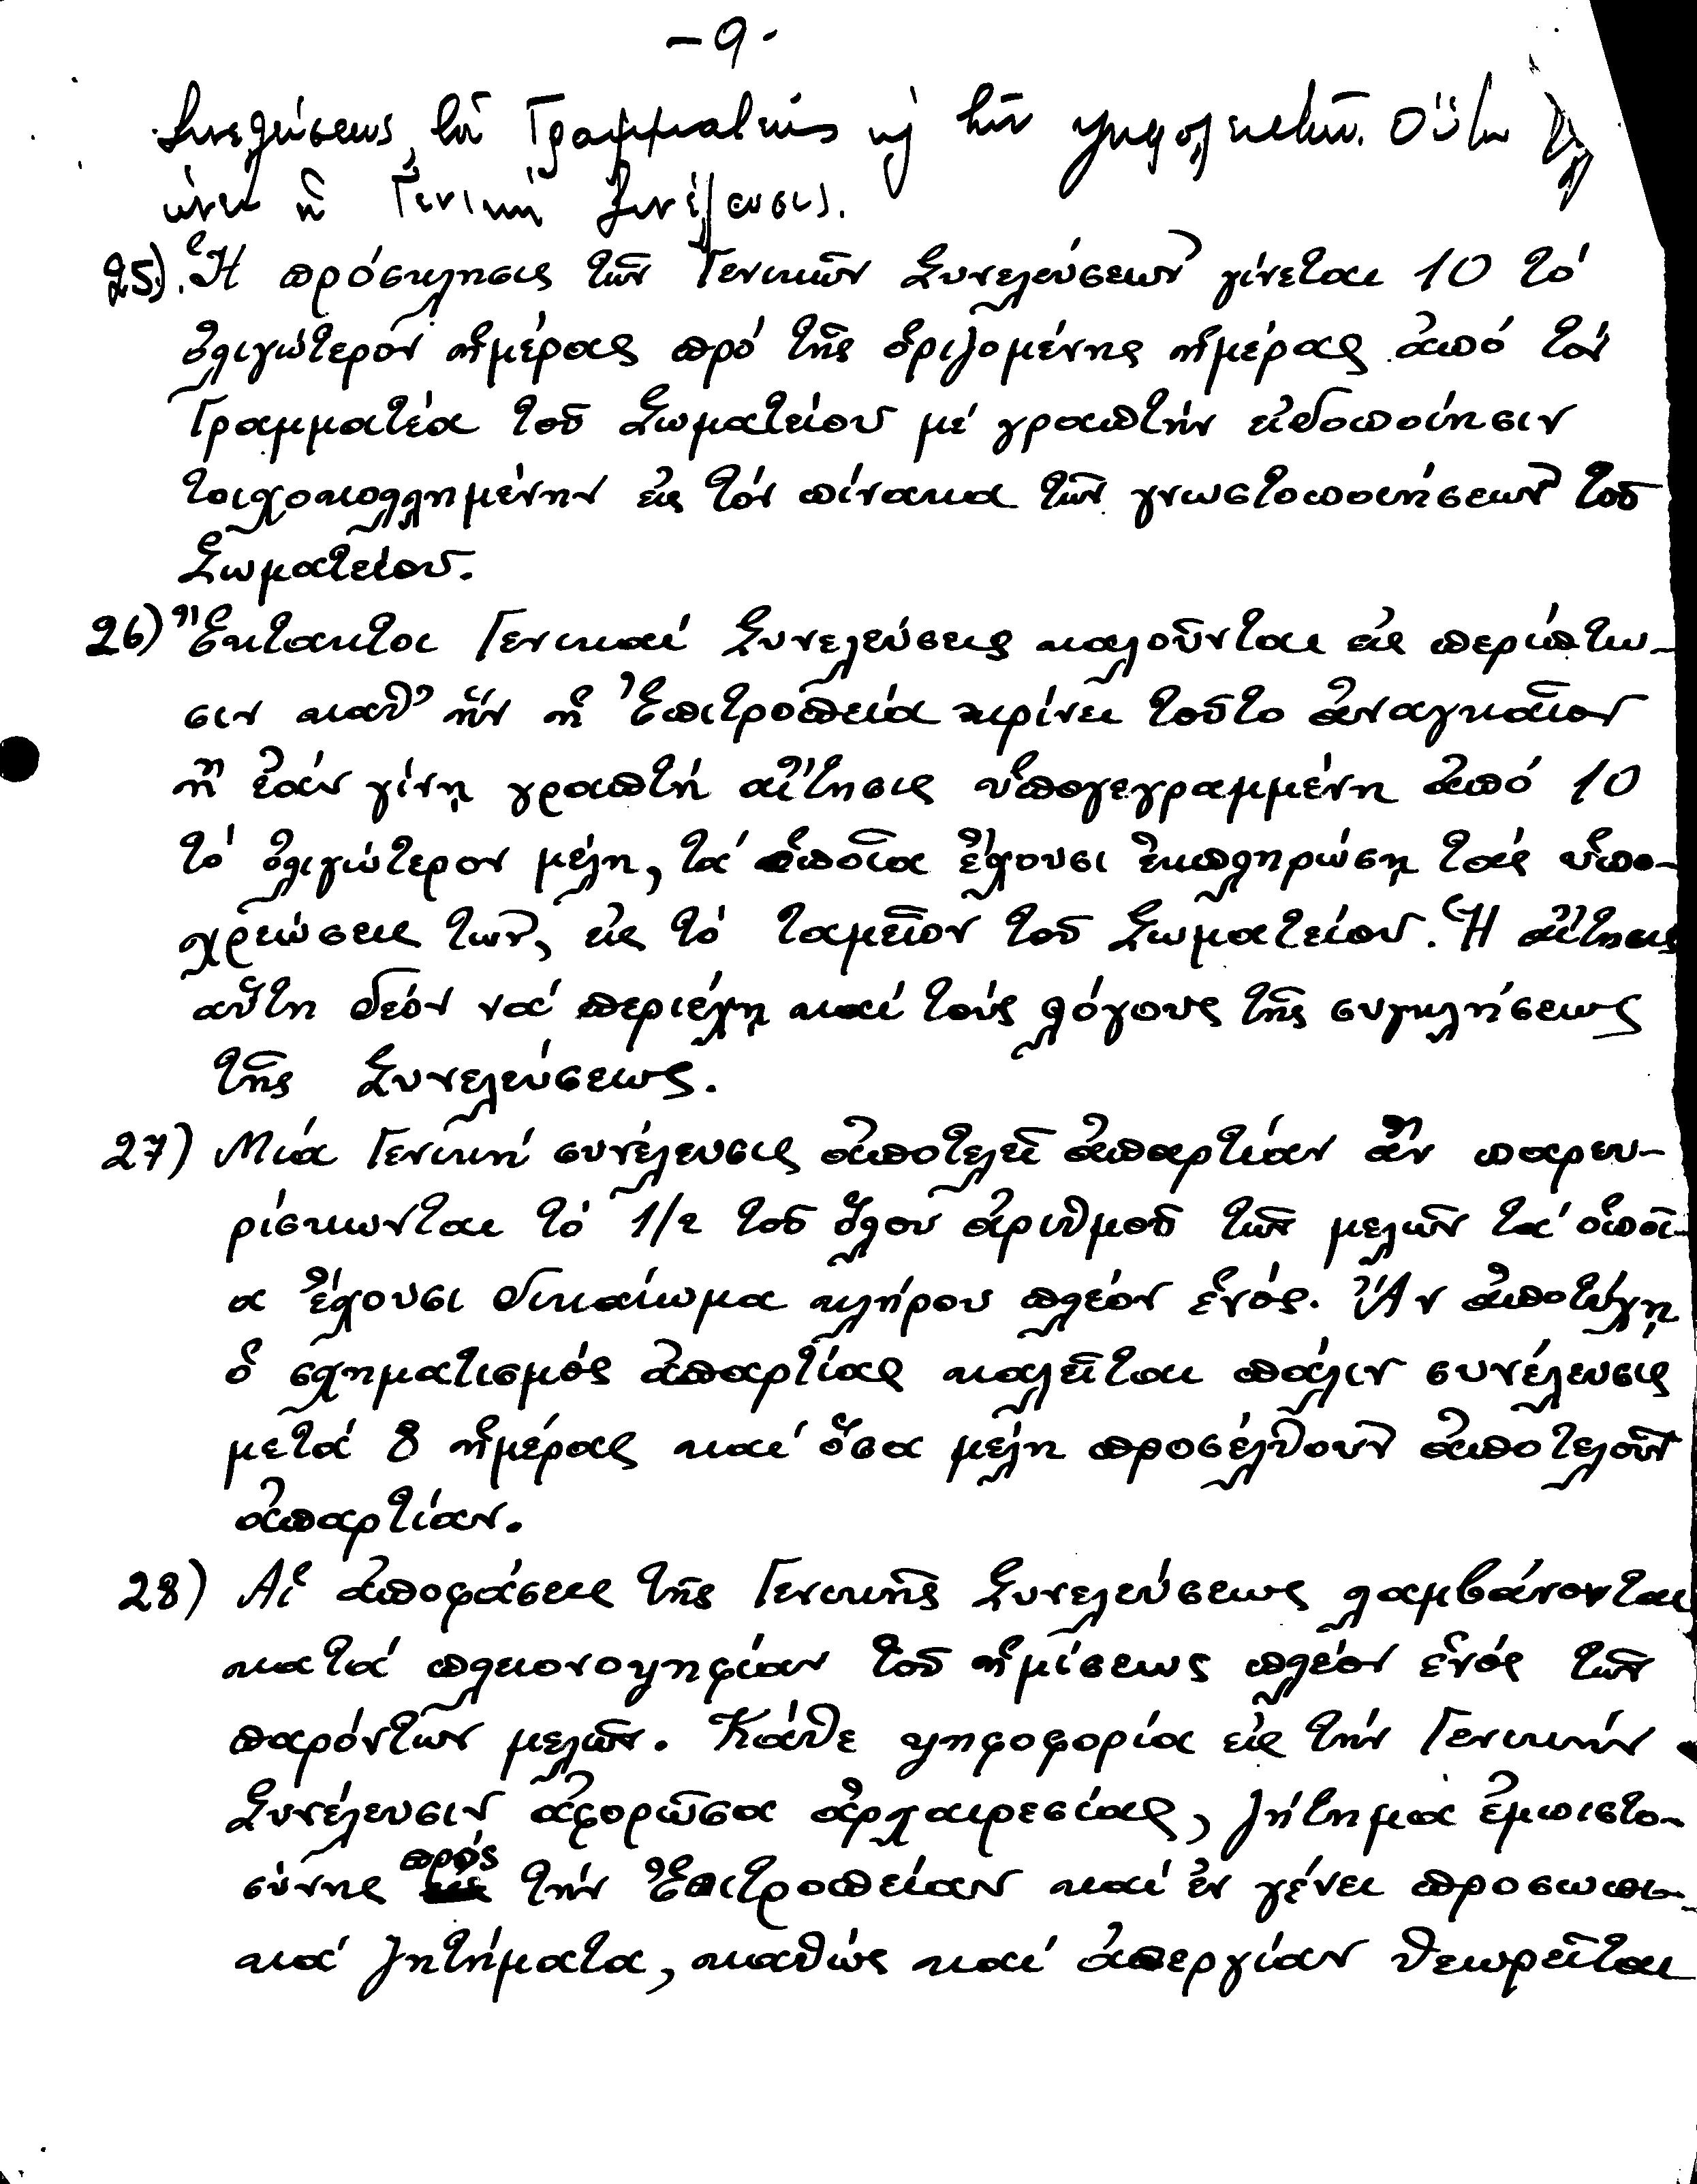 -9-
Συνελεύσεως, τὸν Γραμματέα καὶ τῶν ψηφολεκτῶν. Οὕτω
ἡ Γενική Συνέλευσις.
25). Ἡ πρόσκλησις τῶν Γενικῶν Συνελεύσεων γίνεται 10 τό
ὀλιγώτερον ἡμέρας πρό τῆς ὁριζομένης ἡμέρας ἀπό τόν
Γραμματέα τοῦ Σωματείου μέ γραπτήν εἰδοποίησιν
τοιχοκολλημένην εἰς τόν πίνακα τῶν γνωστοποιήσεων τοῦ
Σωματείου.
26) Ἔκτακτοι Γενικαί Συνελεύσεις καλοῦνται εἰς περίπτω-
σιν καθ' ἥν ἡ Ἐπιτροπεία κρίνει τοῦτο ἀναγκαῖον
ἤ ἐάν γίνῃ γραπτή αἴτησις ὑπογεγραμμένη ἀπό 10
τό ὀλιγώτερον μέλη, τά ὁποῖα ἔχουσι ἐκπληρώσῃ τάς ὑπο-
χρεώσεις των, εἰς τό ταμεῖον τοῦ Σωματείου. Ἡ αἴτησις
αὕτη δέον νά περιέχῃ καί τούς λόγους τῆς συγκλήσεως
τῆς Συνελεύσεως.
27) Μιά Γενική συνέλευσις ἀποτελεῖ ἀπαρτίαν ἄν παρευ-
ρίσκωνται τό 1/2 τοῦ ὅλου ἀριθμοῦ τῶν μελῶν τά ὁποῖ-
α ἔχουσι δικαίωμα κλήρου πλέον ἑνός. Ἄν ἀποτύχῃ
ὁ σχηματισμός ἀπαρτίας καλεῖται πάλιν συνέλευσις
μετά 8 ἡμέρας καί ὅσα μέλη προσέλθουν ἀποτελοῦν
ἀπαρτίαν.
28) Αἱ ἀποφάσεις τῆς Γενικῆς Συνελεύσεως λαμβάνονται
κατά πλειονοψηφίαν τοῦ ἡμίσεως πλέον ἑνός τῶν
παρόντων μελῶν. Κάθε ψηφοφορία εἰς τήν Γενικήν
Συνέλευσιν ἀφορῶσα ἀρχαιρεσίας, ζήτημα ἐμπιστο-
σύνης πρός τήν Ἐπιτροπείαν καί ἐν γένει προσωπι-
κά ζητήματα, καθώς καί ἀπεργίαν θεωρεῖται